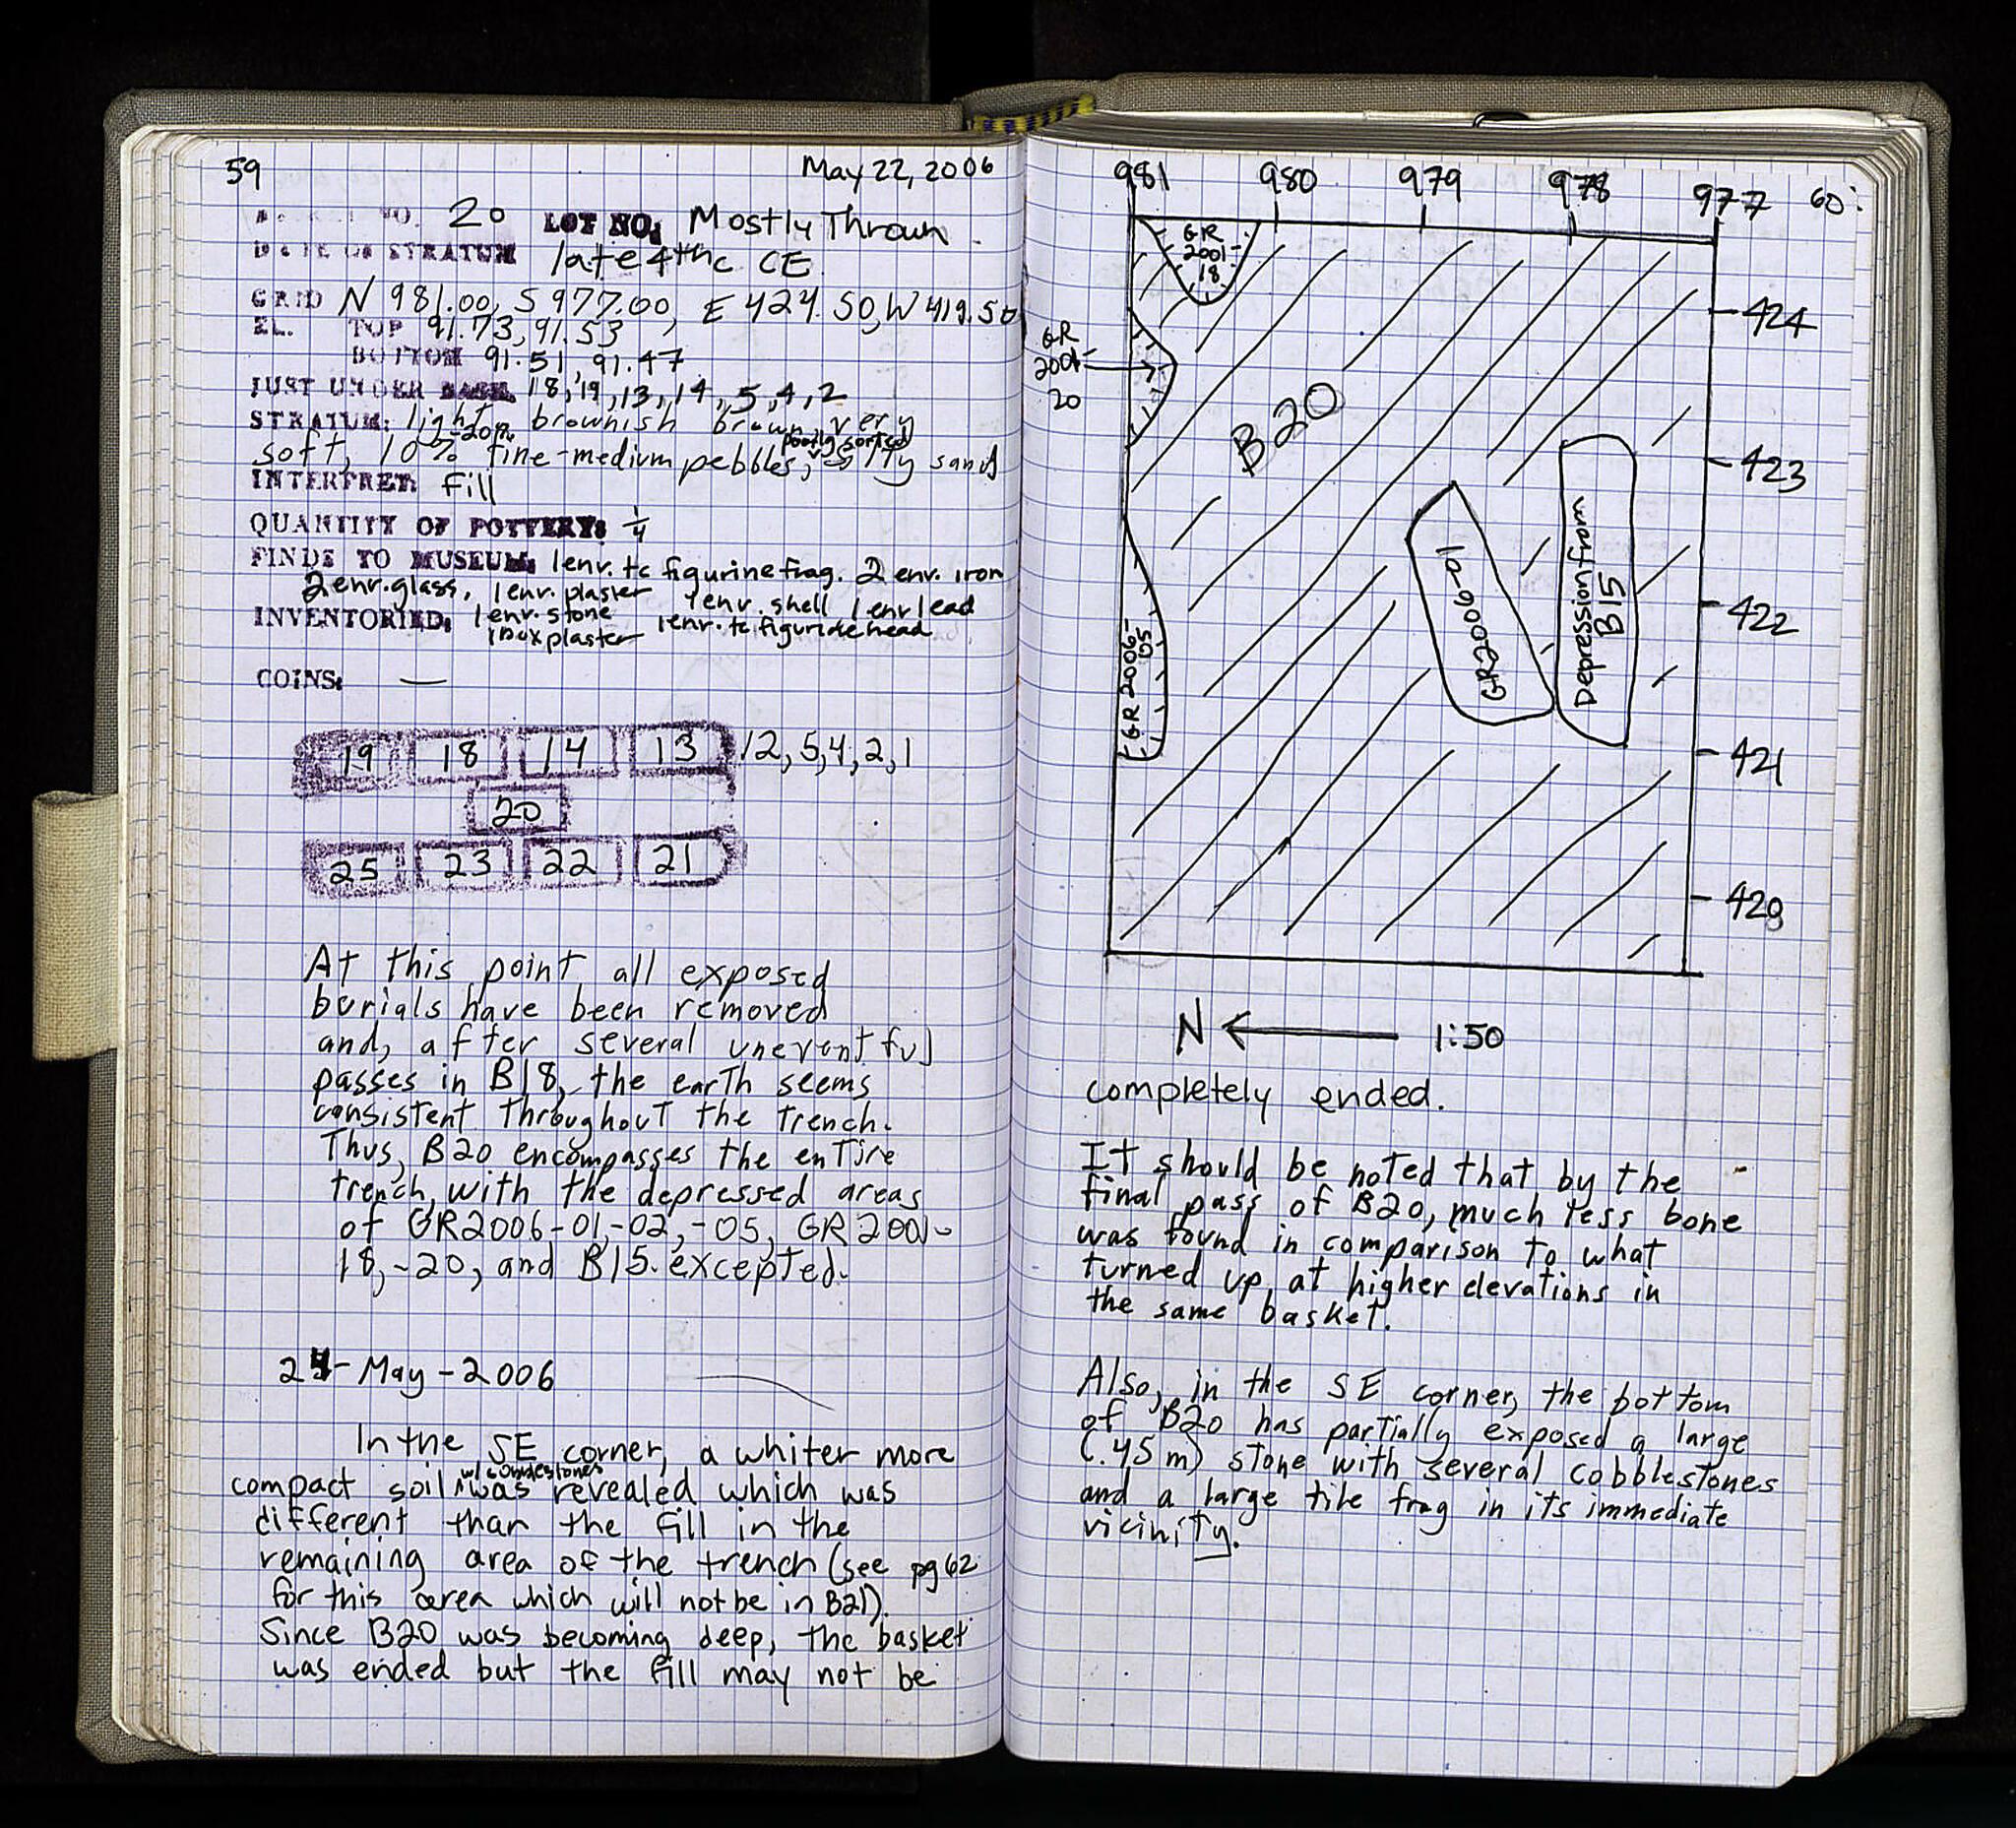 59 May 22, 2006
NO. 20 LOT NO: Mostly Thrown
DATE OF STRATUM late 4th c CE
GRID N 981.00, S 977.00, E 424.50, W 419.50
EL. TOP 91.73, 91.53
BOTTOM 91.51, 91.47
JUST UNDER BASK. 18, 19, 13, 14, 5, 4, 2
STRATUM: light brownish brown, very
soft, 10% fine-medium pebbles, poorly sorted silty sand
INTERPRET: fill
QUANTITY OF POTTERY: 1/4
FINDS TO MUSEUM: 1 env. tc figurine frag. 2 env. iron
2 env. glass, 1 env. plaster 1 env. shell 1 env lead
INVENTORIED: 1 env. stone
1 box plaster 1 env. tc figurine head
COINS: —
19 18 14 13 12, 5, 4, 2, 1
20
25 23 22 21
At this point all exposed
burials have been removed
and, after several uneventful
passes in B18, the earth seems
consistent throughout the trench.
Thus, B20 encompasses the entire
trench, with the depressed areas
of GR2006-01, -02, -05, GR 2001-
18, -20, and B15 excepted.
May-2006
In the SE corner, a whiter more
compact soil w/ cobblestones was revealed which was
different than the fill in the
remaining area of the trench (see pg 62
for this area which will not be in B21).
Since B20 was becoming deep, the basket
was ended but the fill may not be
981 980 979 978 977 60
GR
2001-
18
424
GR
2001-
20
B20
423
Depression from
B15
GR2006-01
422
GR 2006-
05
421
420
N ← 1:50
completely ended.
It should be noted that by the
final pass of B20, much less bone
was found in comparison to what
turned up at higher elevations in
the same basket.
Also, in the SE corner, the bottom
of B20 has partially exposed a large
(.45 m) stone with several cobblestones
and a large tile frag in its immediate
vicinity.